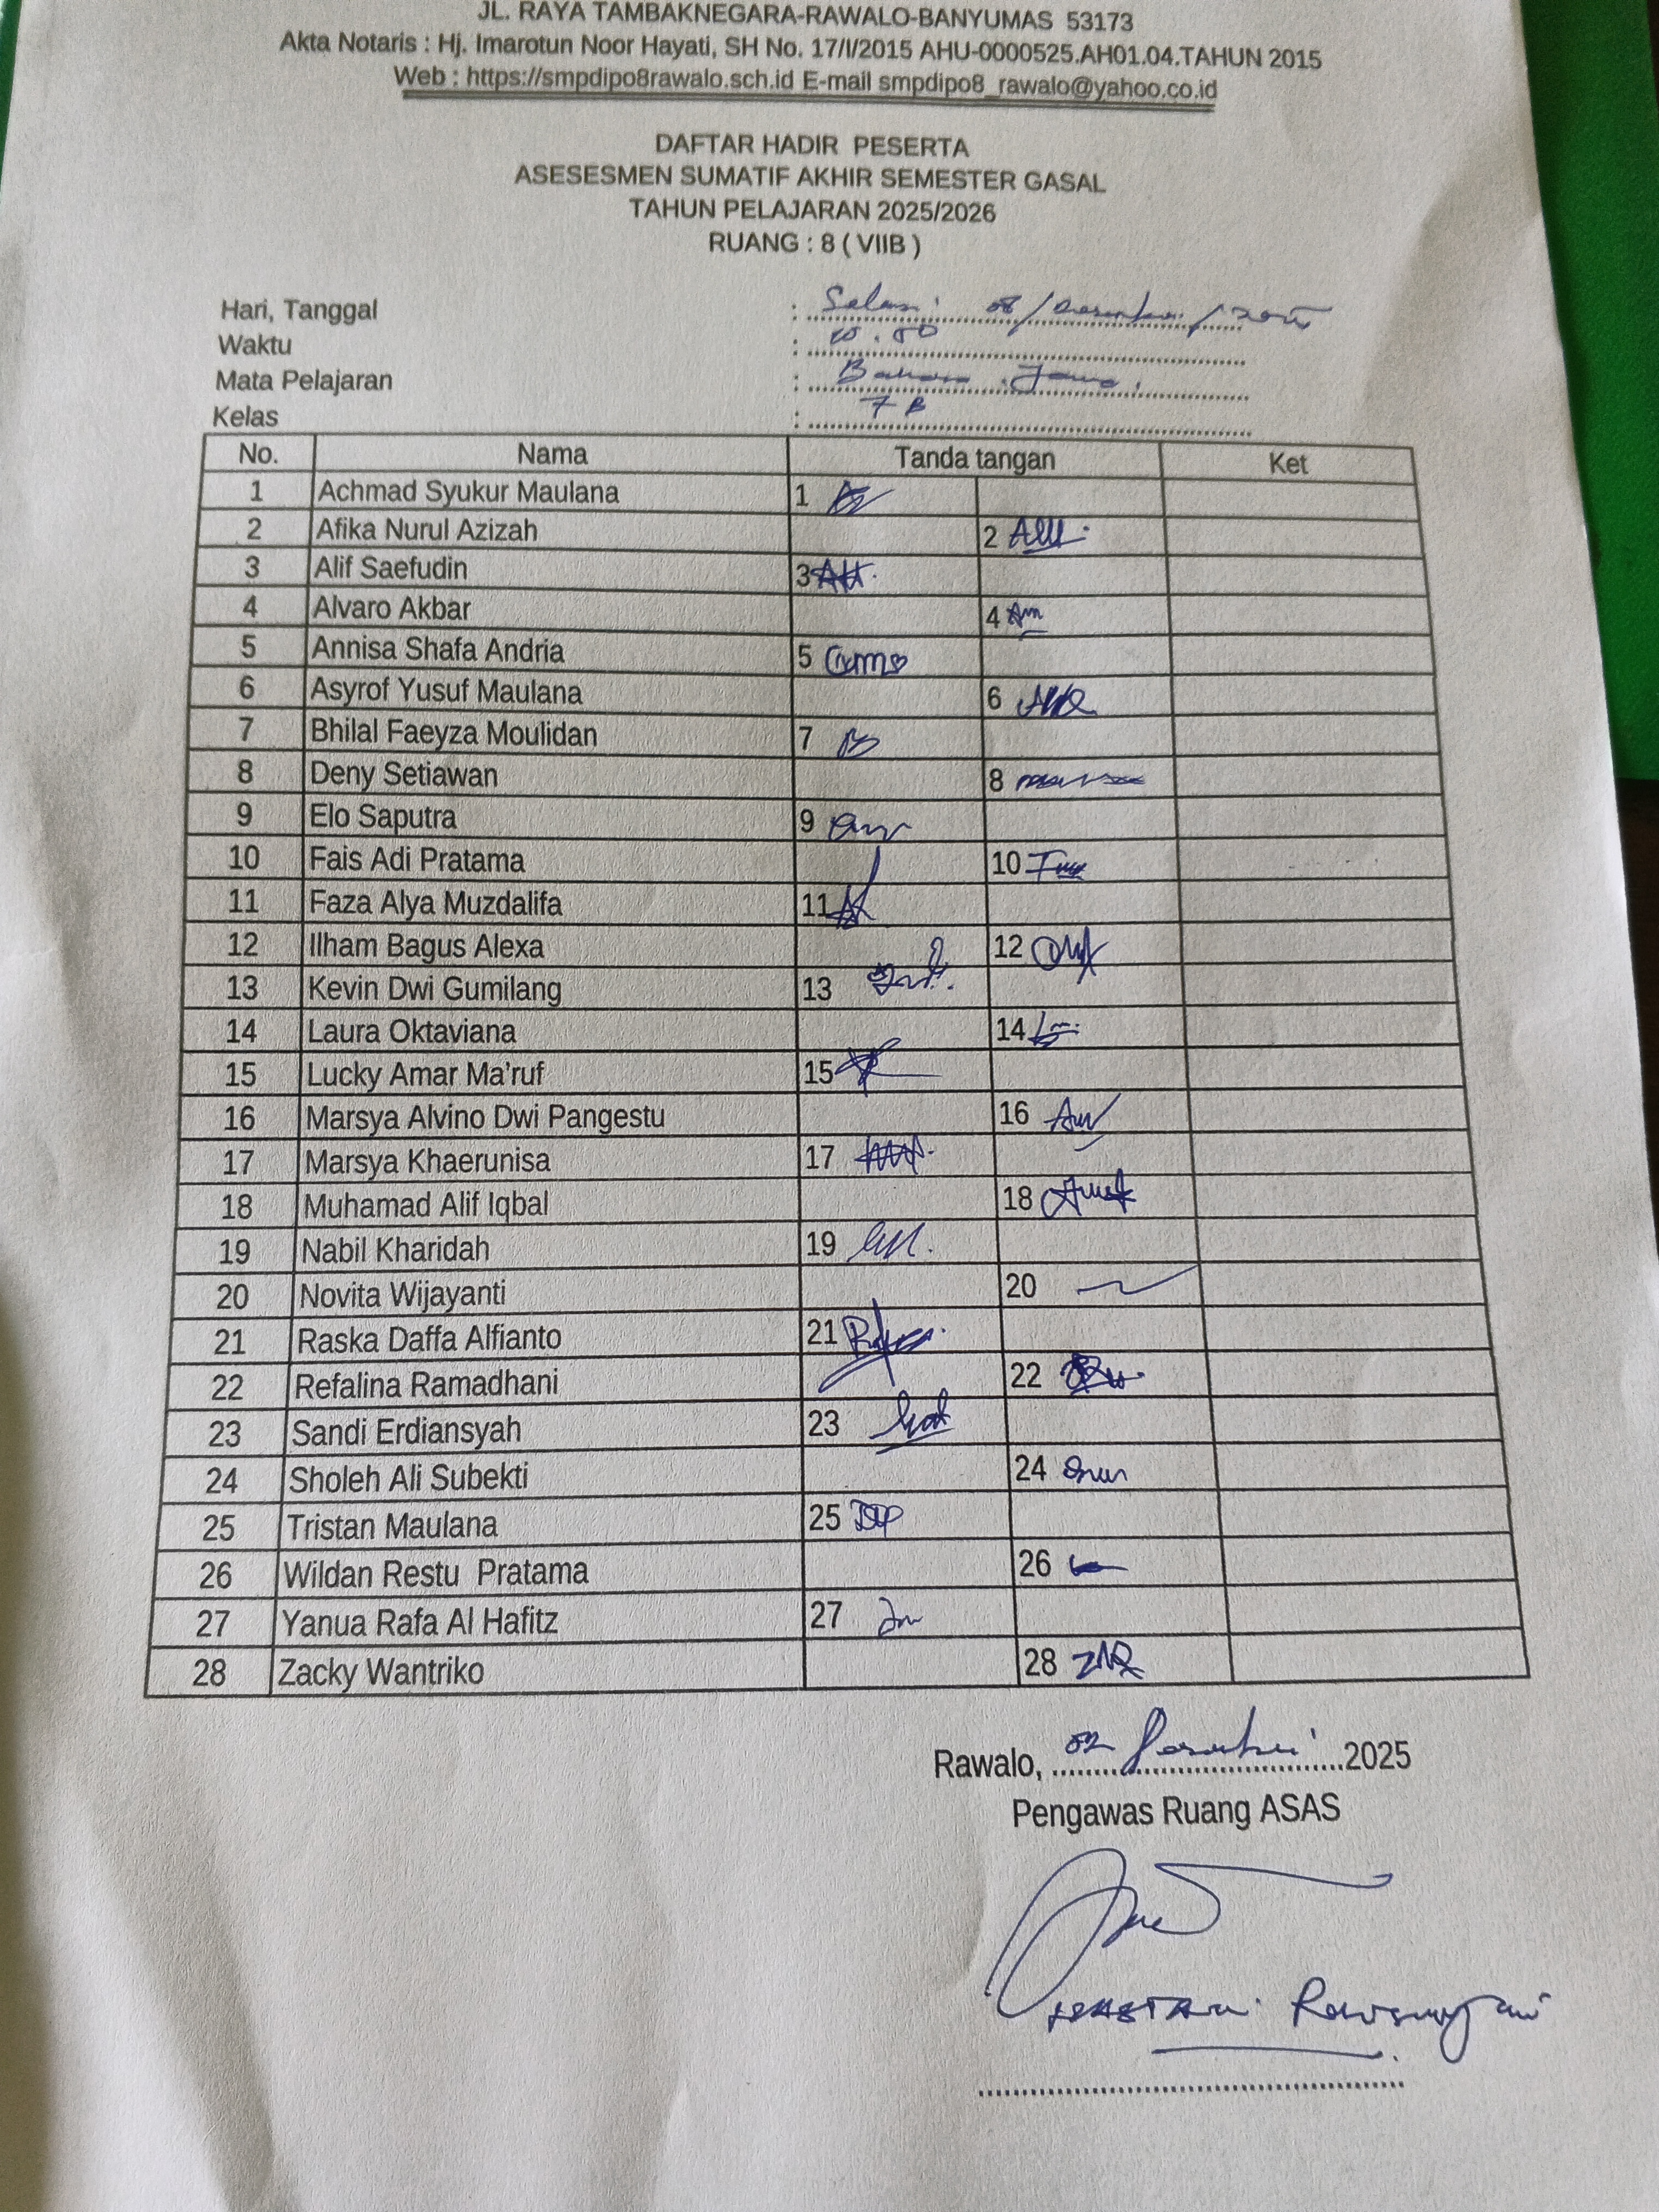 JL. RAYA TAMBAKNEGARA-RAWALO-BANYUMAS 53173
Akta Notaris : Hj. Imarotun Noor Hayati, SH No. 17/I/2015 AHU-0000525.AH01.04.TAHUN 2015
Web : https://smpdipo8rawalo.sch.id E-mail smpdipo8_rawalo@yahoo.co.id
DAFTAR HADIR PESERTA
ASESESMEN SUMATIF AKHIR SEMESTER GASAL
TAHUN PELAJARAN 2025/2026
RUANG : 8 ( VIIB )
Hari, Tanggal : Selasa
Waktu :
Mata Pelajaran : Bahasa Jawa
Kelas : 7 B
No. Nama Tanda tangan Ket
1 Achmad Syukur Maulana 1
2 Afika Nurul Azizah 2
3 Alif Saefudin 3
4 Alvaro Akbar 4
5 Annisa Shafa Andria 5
6 Asyrof Yusuf Maulana 6
7 Bhilal Faeyza Moulidan 7
8 Deny Setiawan 8
9 Elo Saputra 9
10 Fais Adi Pratama 10
11 Faza Alya Muzdalifa 11
12 Ilham Bagus Alexa 12
13 Kevin Dwi Gumilang 13
14 Laura Oktaviana 14
15 Lucky Amar Ma'ruf 15
16 Marsya Alvino Dwi Pangestu 16
17 Marsya Khaerunisa 17
18 Muhamad Alif Iqbal 18
19 Nabil Kharidah 19
20 Novita Wijayanti 20
21 Raska Daffa Alfianto 21
22 Refalina Ramadhani 22
23 Sandi Erdiansyah 23
24 Sholeh Ali Subekti 24
25 Tristan Maulana 25
26 Wildan Restu Pratama 26
27 Yanua Rafa Al Hafitz 27
28 Zacky Wantriko 28
Rawalo, 02 Desember 2025
Pengawas Ruang ASAS